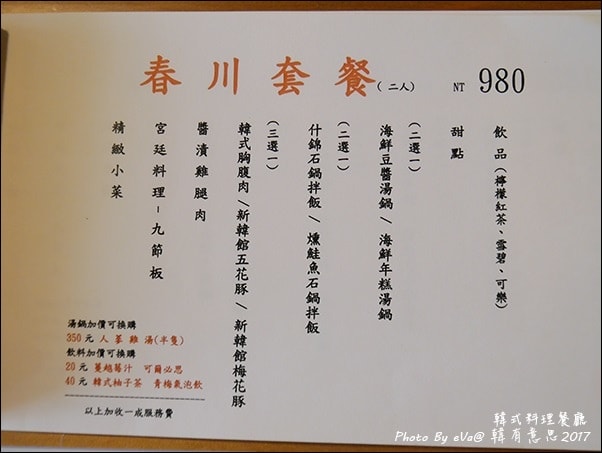 春川套餐(二人) NT 980
精緻小菜
宮廷料理－九節板
醬漬雞腿肉
(三選一)
韓式胸腹肉/新韓館五花豚/新韓館梅花豚
(二選一)
什錦石鍋拌飯/燻鮭魚石鍋拌飯
(二選一)
海鮮豆醬湯鍋/海鮮年糕湯鍋
甜點
飲品(檸檬紅茶、雪碧、可樂)
湯鍋加價可換購
350元 人蔘雞湯(半隻)
飲料加價可換購
20元 蔓越莓汁 可爾必思
40元 韓式柚子茶 青梅氣泡飲
以上加收一成服務費
韓式料理餐廳
Photo By eVa@ 韓有意思 2017